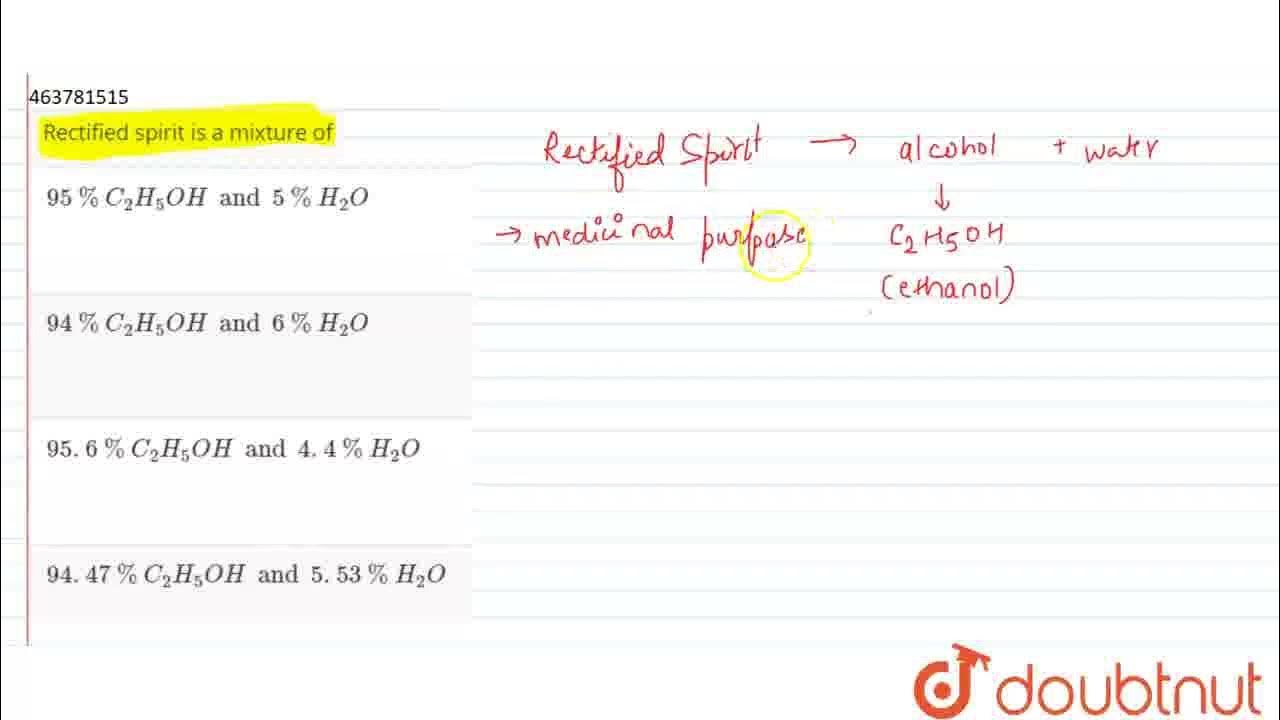 463781515
Rectified spirit is a mixture of
95 % C₂H₅OH and 5 % H₂O
94 % C₂H₅OH and 6 % H₂O
95. 6 % C₂H₅OH and 4. 4 % H₂O
94. 47 % C₂H₅OH and 5. 53 % H₂O
Rectified Spirit → alcohol + water
↓
→ medicinal purpose C₂H₅OH
(ethanol)
doubtnut